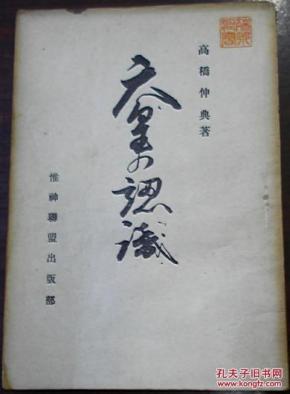 高橋伸典著
天皇の認識
惟神聯盟出版部
孔夫子旧书网